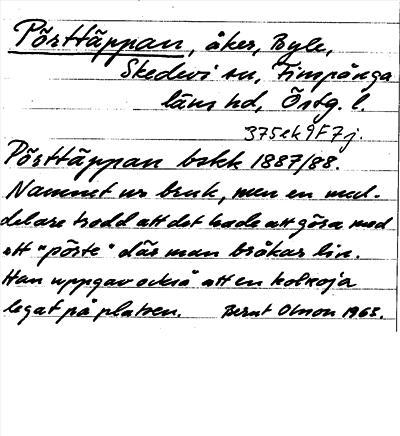 Pörttäppan, åker, Byle,
Skedevi sn, Finspånga
läns hd, Östg. l.
375ek9F7j.
Pörttäppan bskk 1887/88.
Namnet ur bruk, men en med-
delare trodd att det hade att göra med
ett "pörte" där man bråkar lin.
Han uppgav också att en kolkoja
legat på platsen. Bernt Olsson 1965.